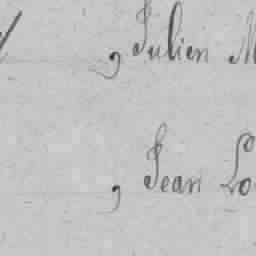 , Julien M
, Jean Lo